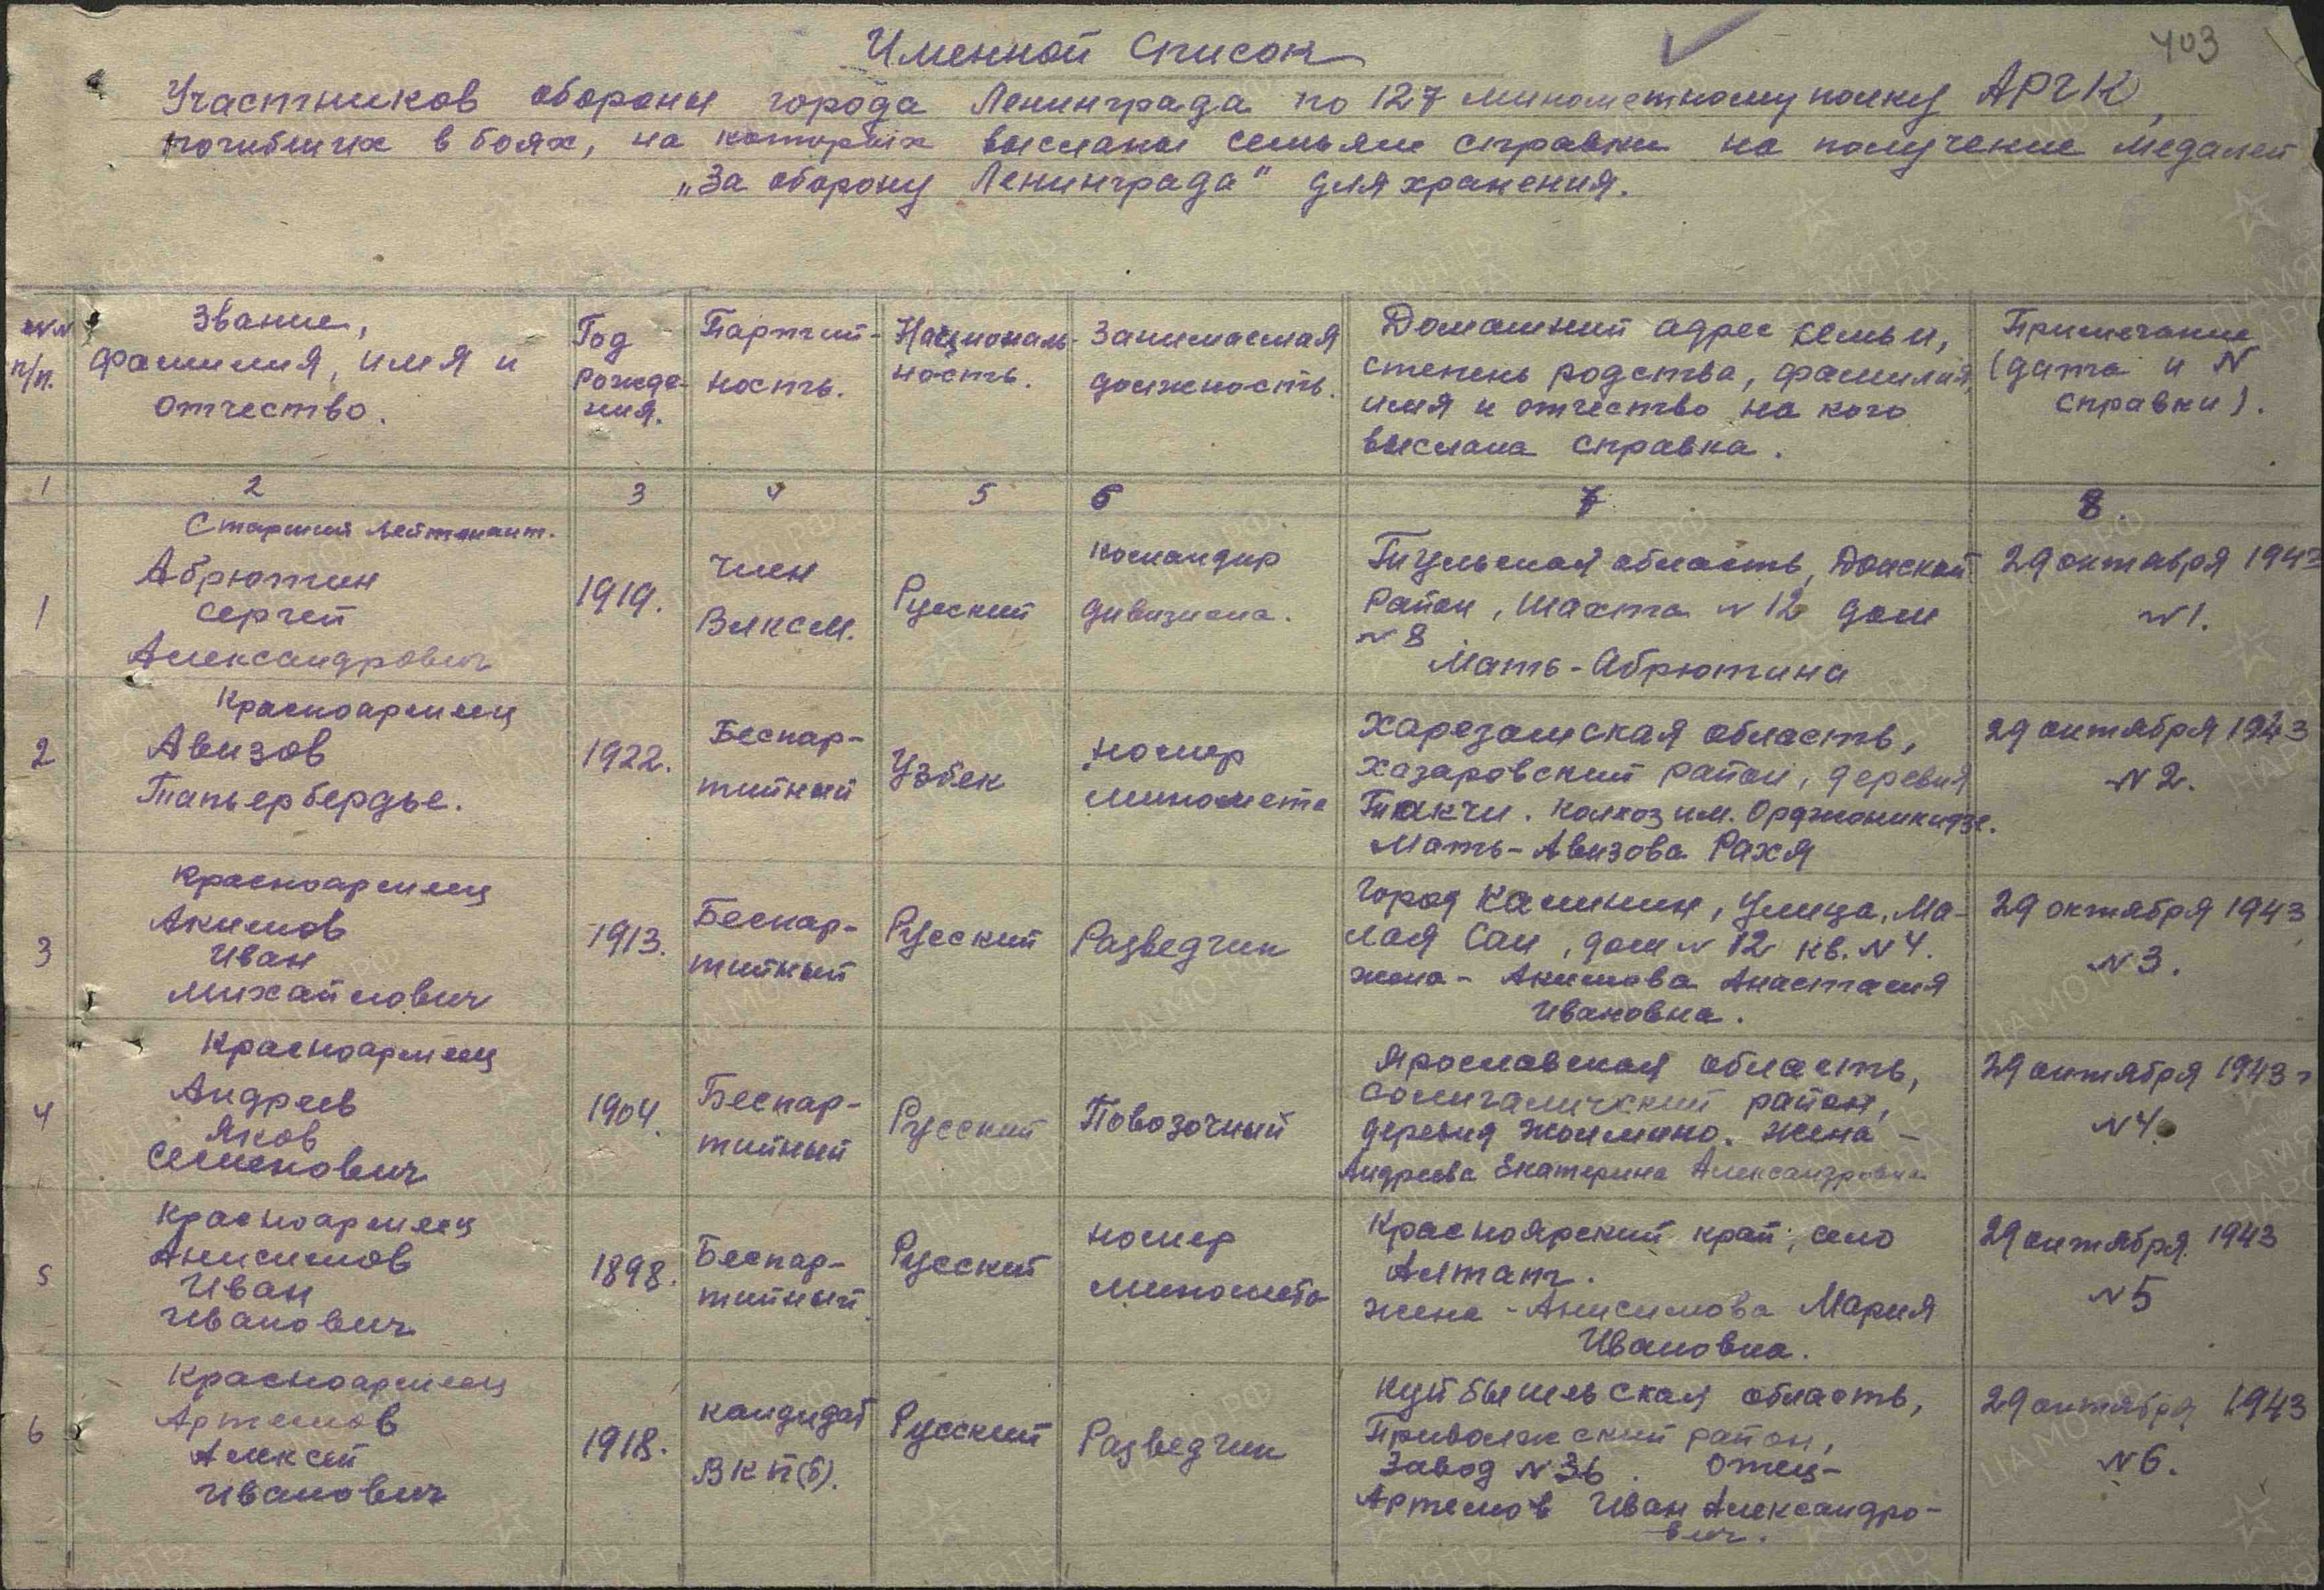 403
Именной список
Участников обороны города Ленинграда по 127 минометному полку АРГК,
погибших в боях, на которых высланы семьям справки на получение медалей
„За оборону Ленинграда“ для хранения.
№№ п/п.
Звание,
фамилия, имя и
отчество.
Год
рожде-
ния.
Партий-
ность.
Националь-
ность.
Занимаемая
должность.
Домашний адрес семьи,
степень родства, фамилия,
имя и отчество на кого
выслана справка.
Примечание
(дата и N
справки).
1 2 3 4 5 6 7 8.
1
Старший лейтенант.
Абрютин
Сергей
Александрович
1919.
Член
ВЛКСМ.
Русский
командир
дивизиона.
Тульская область, Донской
Район, Шахта N 12 дом
N 8
Мать - Абрютина
29 октября 1943
N 1.
2
Красноармеец
Авизов
Тапьербердье.
1922.
Беспар-
тийный
Узбек
номер
миномета
Харезамская область,
Хазаровский район, деревня
Такчи. Колхоз им. Орджоникидзе.
Мать - Авизова Рахя
29 октября 1943
N 2.
3
Красноармеец
Акимов
Иван
Михайлович
1913.
Беспар-
тийный
Русский
Разведчик
Город Калинин, Улица, Ма-
лая Сам, дом N 12 кв. N 4.
жена - Акимова Анастасия
Ивановна.
29 октября 1943
N 3.
4
Красноармеец
Андреев
Яков
Семенович
1904.
Беспар-
тийный
Русский
Повозочный
Ярославская область,
Солигаличский район,
деревня Жолмино. Жена -
Андреева Екатерина Александровна
29 октября 1943 г
N 4.
5
Красноармеец
Анисимов
Иван
Иванович
1898.
Беспар-
тийный
Русский
номер
миномета
Красноярский край, село
Алтат.
жена - Анисимова Мария
Ивановна.
29 октября 1943
N 5
6
Красноармеец
Артемов
Алексей
Иванович
1918.
кандидат
ВКП(б).
Русский
Разведчик
Куйбышевская область,
Приволжский район,
Завод N 36. Отец -
Артемов Иван Александро-
вич.
29 октября 1943
N 6.